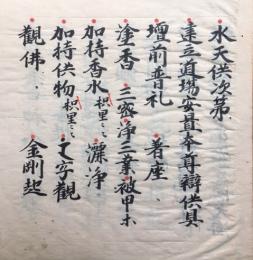 水天供次第
建立道場安置本尊辦供具
壇前普礼 着座
塗香 三密淨三業被甲
加持香水枳里〻 灑淨
加持供物枳里〻 字觀
觀佛 金剛起